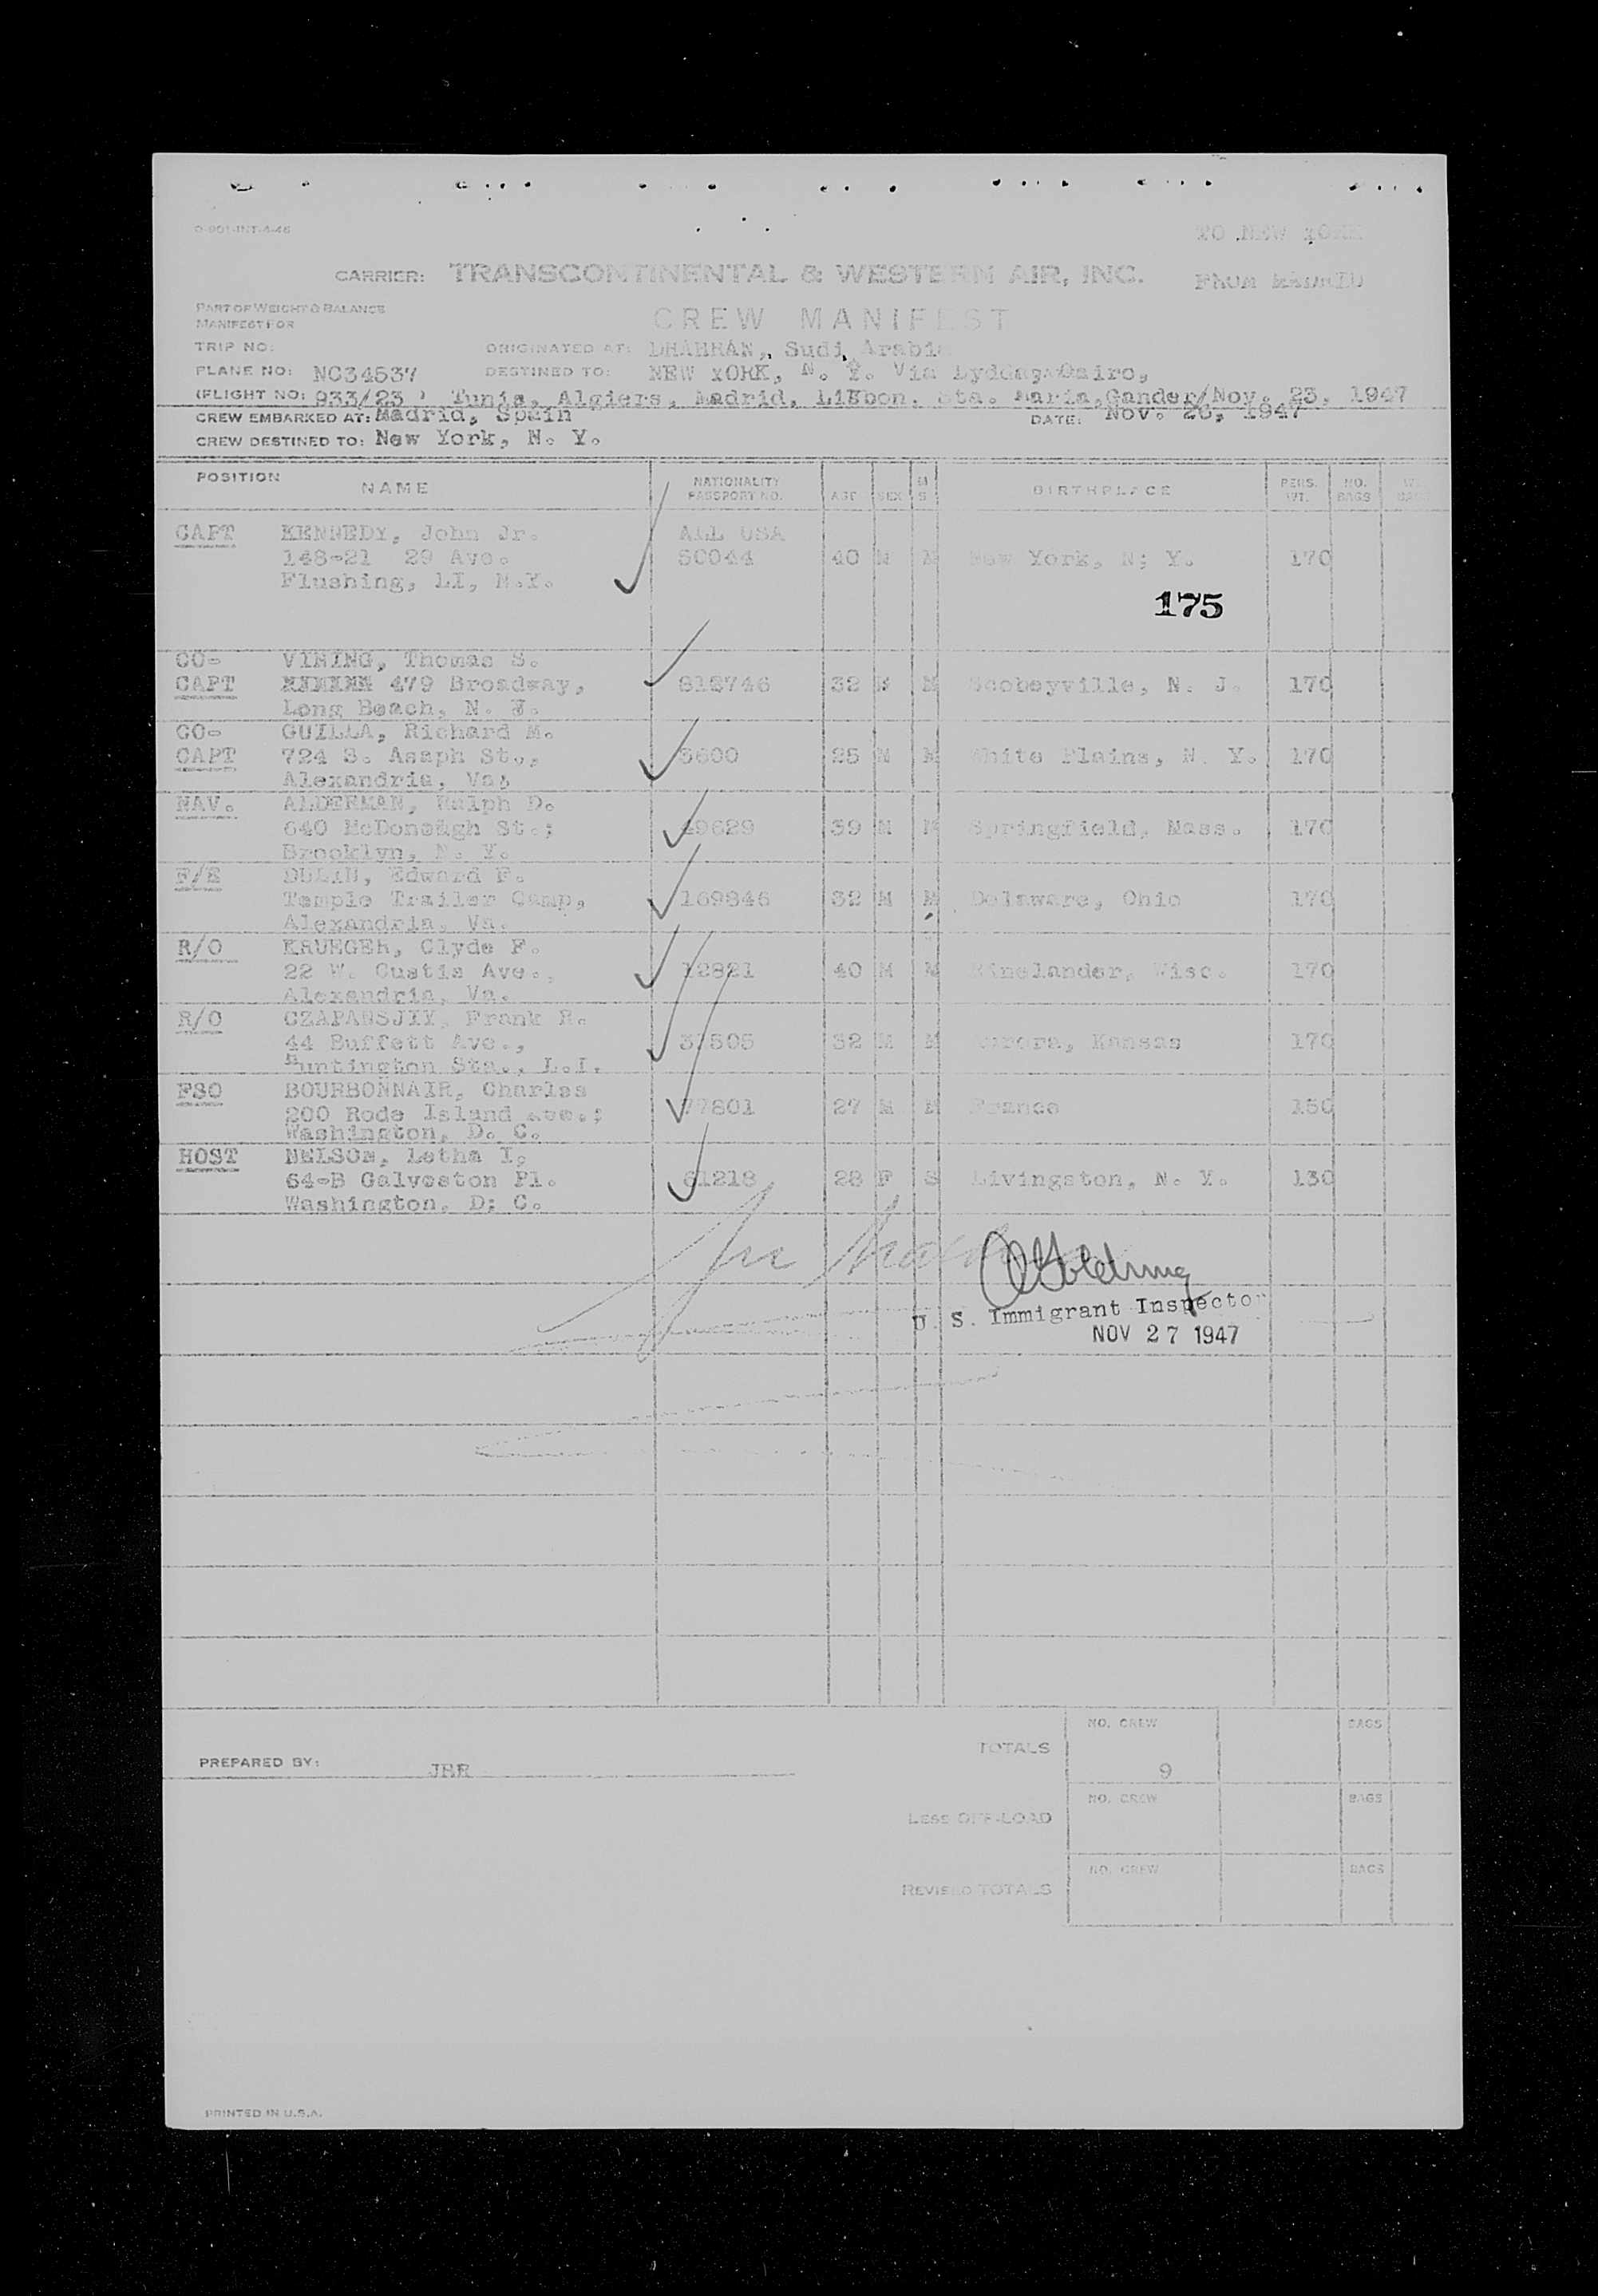 O-901-INT-4-46
TO NEW YORK
CARRIER: TRANSCONTINENTAL & WESTERN AIR, INC. FROM MADRID
PART OF WEIGHT & BALANCE
MANIFEST FOR
CREW MANIFEST
TRIP NO: ORIGINATED AT: DHAHRAN, Sudi Arabia
PLANE NO: NC34537 DESTINED TO: NEW YORK, N. Y. Via Lydda, Cairo,
(FLIGHT NO: 933/23 ) Tunis, Algiers, Madrid, Lisbon, Sta. Maria, Gander/Nov. 23, 1947
CREW EMBARKED AT: Madrid, Spain DATE: Nov. 26, 1947
CREW DESTINED TO: New York, N. Y.
POSITION NAME NATIONALITY PASSPORT NO. AGE SEX M S BIRTHPLACE PERS. WT. NO. BAGS WT. BAGS
CAPT KENNEDY, John Jr. ALL USA
148-21 29 Ave. 50044 40 M M New York, N; Y. 170
Flushing, LI, N.Y.
175
CO- VINING, Thomas S.
CAPT 479 Broadway, 32 M M Scobeyville, N. J. 170
Long Beach, N. J.
CO- GUILLA, Richard M.
CAPT 724 S. Asaph St., 5600 25 M M White Plains, N. Y. 170
Alexandria, Va;
NAV. ALDERMAN, Ralph D.
640 McDonough St.; 49629 39 M M Springfield, Mass. 170
Brooklyn, N. Y.
F/E DULIN, Edward F.
Temple Trailer Camp, 169846 32 M M Delaware, Ohio 170
Alexandria, Va.
R/O KRUEGER, Clyde F.
22 W. Custis Ave., 12821 40 M M Rinelander, Wisc. 170
Alexandria, Va.
R/O CZAPANSJIY, Frank R.
44 Buffett Ave., 32 M M Aurora, Kansas 170
Huntington Sta., L.I.
FSO BOURBONNAIR, Charles
200 Rode Island Ave.; 77801 27 M M France 150
Washington, D. C.
HOST NELSON, Letha I;
64-B Galveston Pl. 61218 28 F S Livingston, N. Y. 130
Washington, D; C.
U. S. Immigrant Inspector
NOV 27 1947
NO. CREW BAGS
TOTALS
PREPARED BY: JBR 9
NO. CREW BAGS
LESS OFF-LOAD
NO. CREW BAGS
REVISED TOTALS
PRINTED IN U.S.A.